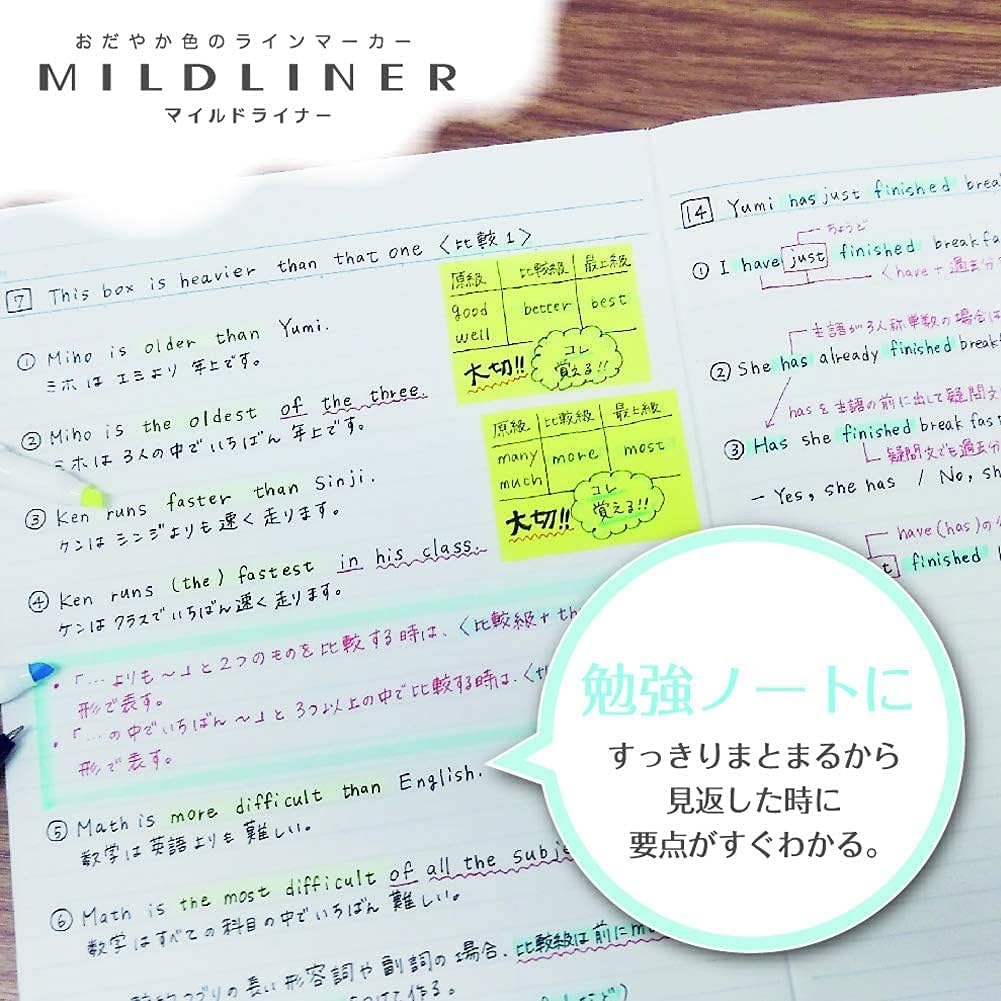 おだやか色のラインマーカー
MILDLINER
マイルドライナー
7 This box is heavier than that one 〈比較1〉
① Miho is older than Yumi.
ミホは エミより 年上です。
② Miho is the oldest of the three.
ミホは 3人の中でいちばん 年上です。
③ Ken runs faster than Sinji.
ケンは シンジよりも 速く 走ります。
④ Ken runs (the) fastest in his class.
ケンは クラスでいちばん 速く 走ります。
・「…よりも〜」と2つのものを比較する時は、〈比較級+th
形で表す。
・「…の中でいちばん〜」と3つ以上の中で比較する時は、〈t
形で表す。
⑤ Math is more difficult than English.
数学は英語よりも 難しい。
⑥ Math is the most difficult of all the subje
数学はすべての科目の中でいちばん 難しい。
の長い形容詞や副詞の場合、比較級は前にm
けて作る。
原級 比較級 最上級
good better best
well
大切!! コレ
覚える!!
原級 比較級 最上級
many more most
much
大切!! コレ
覚える!!
14 Yumi has just finished brea
ちょうど
① I have just finished breakfa
〈have+過去分
主語が3人称単数の場合は
② She has already finished break
hasを主語の前に出して疑問文
③ Has she finished breakfas
疑問文でも過去分
– Yes, she has / No, sh
have(has)の
t finished b
勉強ノートに
すっきりまとまるから
見返した時に
要点がすぐわかる。